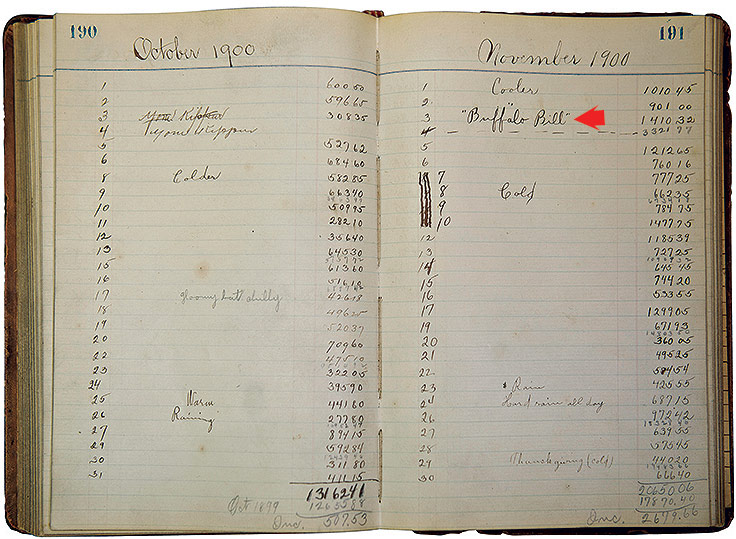 190
October 1900
1 600 50
2 596 65
3 Yom Kippur 308 35
4 Kippur
5 527 62
6 684 60
8 Colder 582 85
9 663 40
10 509 95
11 282 10
12 356 40
13 645 30
15 613 60
16 516 18
17 gloomy 426 18
18 496 25
19 520 37
20 709 60
22 475 10
23 322 05
24 395 90
25 Warm 441 60
26 Raining 277 80
27 894 15
29 592 84
30 311 80
31 411 15
13162 41
Oct 1899 12655 88
Inc. 507.53
191
November 1900
1 Cooler 1010 45
2 901 00
3 "Buffalo Bill" 1410 32
4 3321 77
5 1212 65
6 760 16
7 777 25
8 Cold 662 35
9 784 75
10 1477 75
12 1185 39
13 727 25
14 645 45
15 744 20
16 533 55
17 1299 05
19 671 93
20 360 05
21 495 25
22 584 54
23 Rain 425 55
24 Hard rain all day 687 15
26 972 42
27 639 55
28 575 45
29 Thanksgiving (cold) 440 20
30 666 40
20650 06
17870.40
Inc. 2679.66